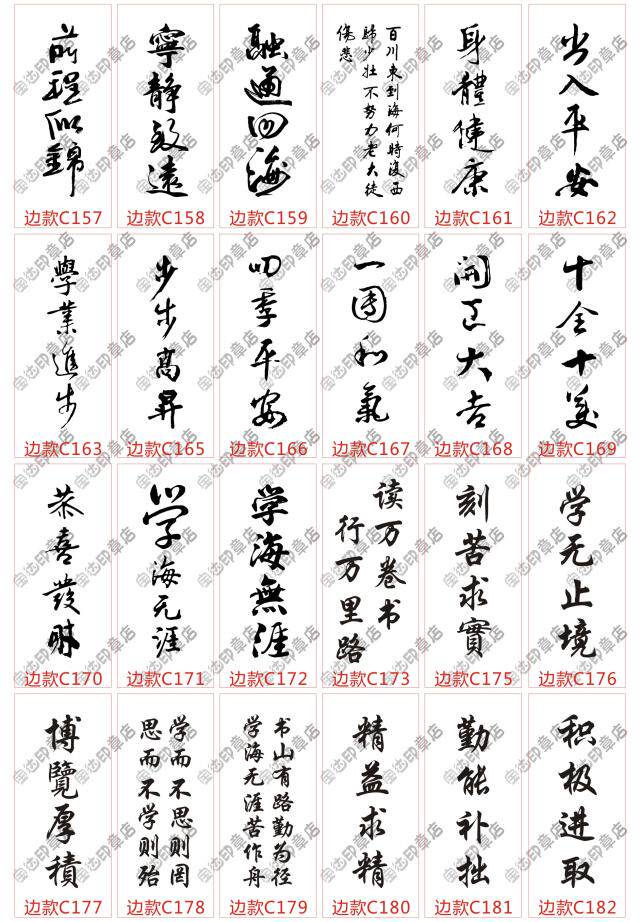 前程似錦
边款C157
寧靜致遠
边款C158
融通四海
边款C159
百川東到海何時復西
歸少壯不努力老大徒
傷悲
边款C160
身體健康
边款C161
出入平安
边款C162
學業進步
边款C163
步步高昇
边款C165
四季平安
边款C166
一團和氣
边款C167
開工大吉
边款C168
十全十美
边款C169
恭喜發財
边款C170
学海无涯
边款C171
学海無涯
边款C172
读万卷书
行万里路
边款C173
刻苦求實
边款C175
学无止境
边款C176
博覽厚積
边款C177
学而不思则罔
思而不学则殆
边款C178
书山有路勤为径
学海无涯苦作舟
边款C179
精益求精
边款C180
勤能补拙
边款C181
积极进取
边款C182